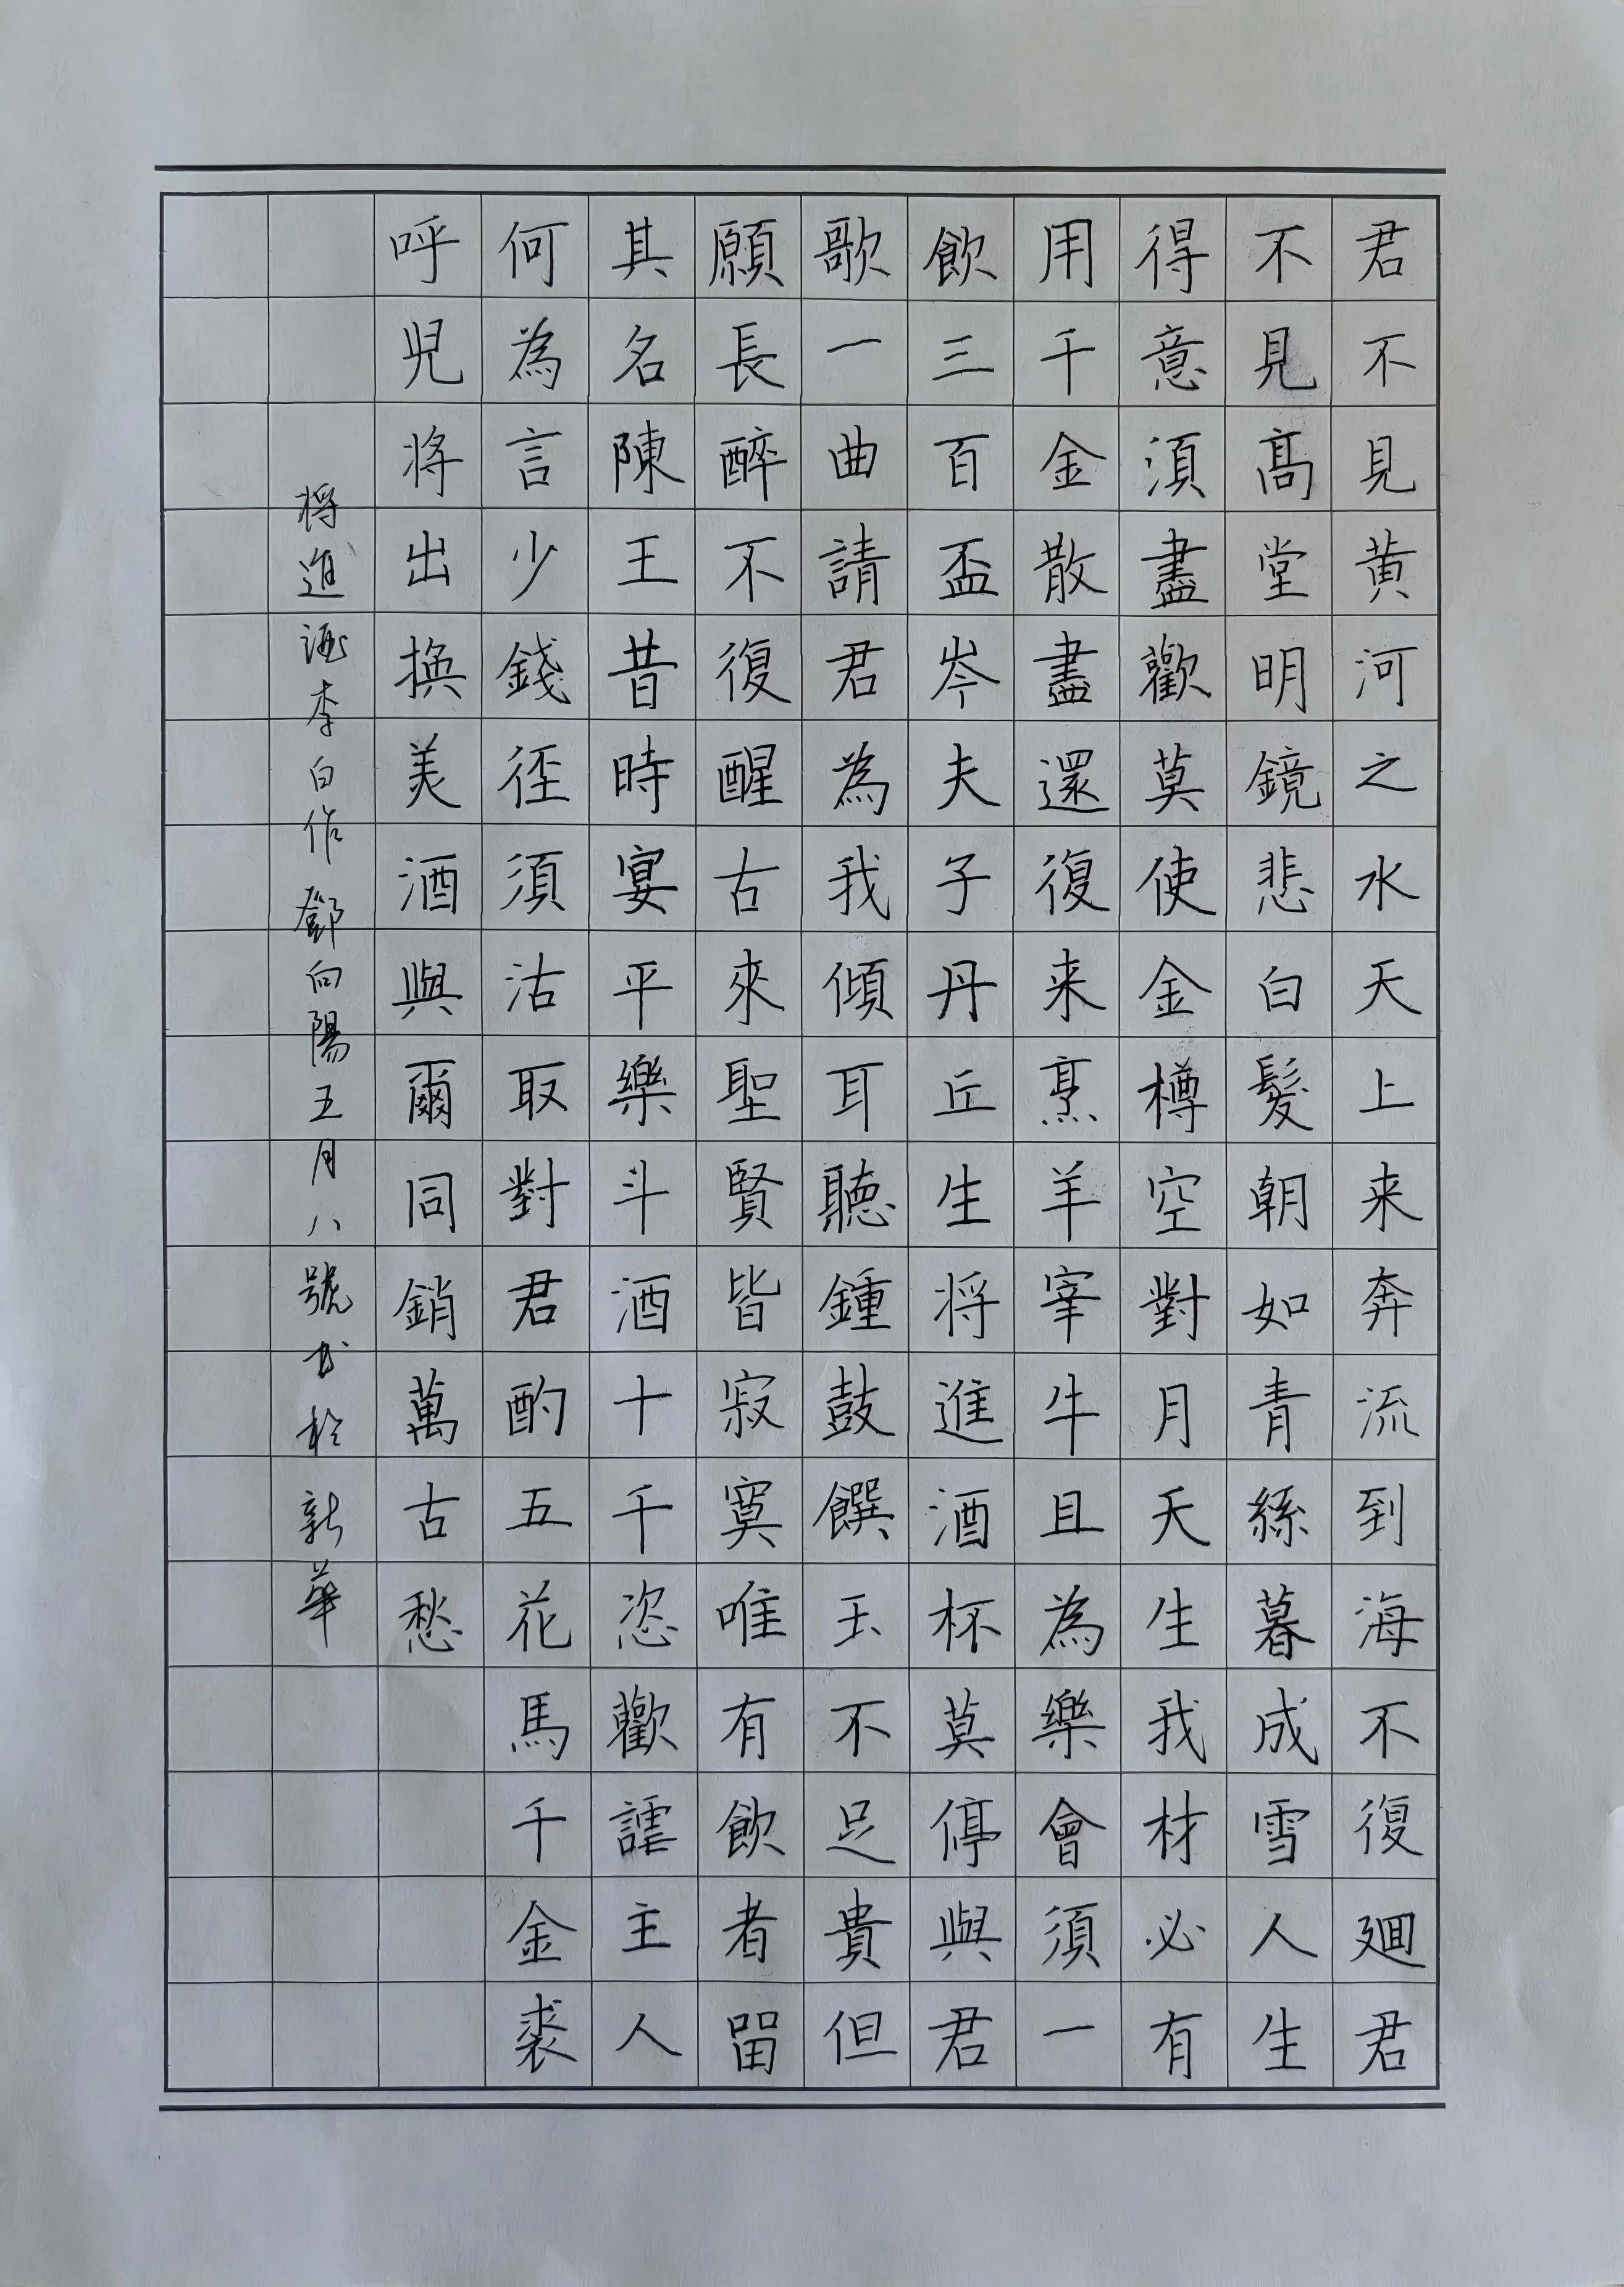 君不見黄河之水天上来奔流到海不復廻君
不見髙堂明鏡悲白髮朝如青絲暮成雪人生
得意須盡歡莫使金樽空對月天生我材必有
用千金散盡還復来烹羊宰牛且為樂會須一
飲三百盃岑夫子丹丘生将進酒杯莫停與君
歌一曲請君為我傾耳聽鍾鼓饌玉不足貴但
願長醉不復醒古來聖賢皆寂寞唯有飲者留
其名陳王昔時宴平樂斗酒十千恣歡謔主人
何為言少錢徑須沽取對君酌五花馬千金裘
呼児将出換美酒與爾同銷萬古愁
将進酒李白作鄧向陽五月八號书於新華